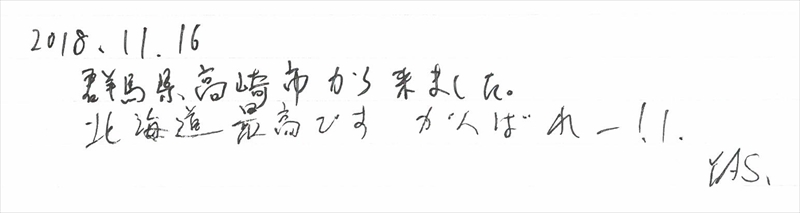 2018.11.16
群馬県高崎市から来ました。
北海道最高です がんばれー!!
YAS.